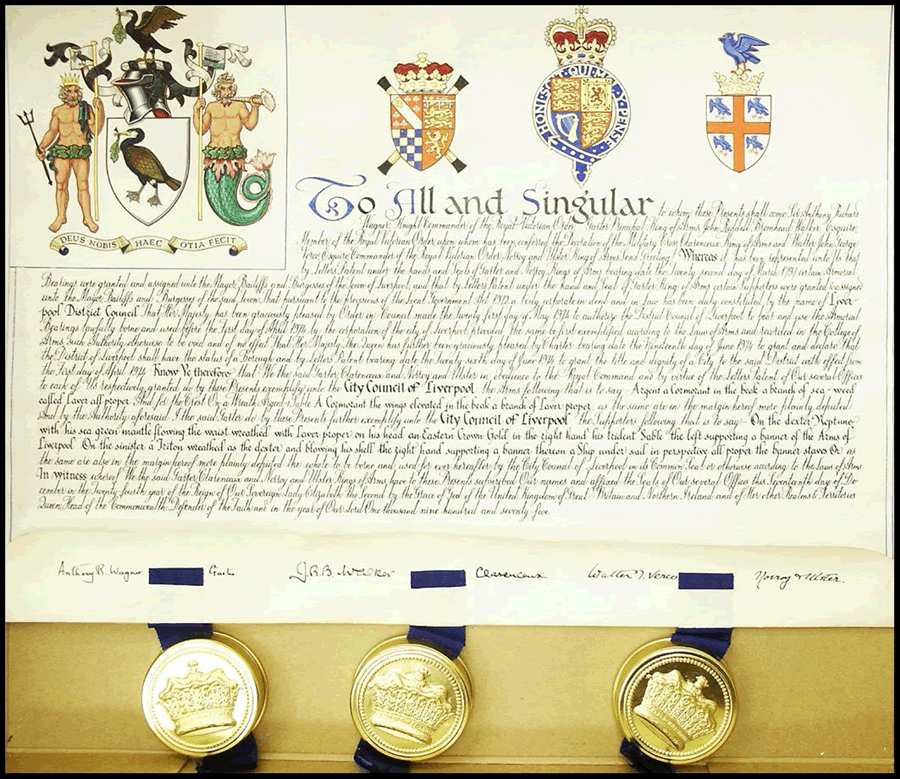 DEUS NOBIS HAEC OTIA FECIT
HONI SOIT QUI MAL Y PENSE
To All and Singular to whom these Presents shall come Sir Anthony Richard
Wagner, Knight Commander of the Royal Victorian Order, Garter Principal King of Arms, John Riddell Bromhead Walker Esquire,
Member of the Royal Victorian Order upon whom has been conferred the Decoration of the Military Cross Clarenceux King of Arms and Walter John George
Verco, Esquire, Commander of the Royal Victorian Order, Norroy and Ulster King of Arms Send Greeting! Whereas it has been represented unto Us that
by Letters Patent under the hands and Seals of Garter and Norroy Kings of Arms bearing date the twenty second day of March 1797 certain Armorial
Bearings were granted and assigned unto the Mayor, Bailiffs and Burgesses of the Town of Liverpool and that by Letters Patent under the hand and Seal of Garter King of Arms certain Supporters were granted & assigned
unto the Mayor, Bailiffs and Burgesses of the said Town, That pursuant to the provisions of the Local Government Act 1972 a body corporate in deed and in law has been duly constituted by the name of Liver-
pool District Council That Her Majesty has been graciously pleased by Order in Council made the twenty first day of May 1974 to authorize the District Council of Liverpool to bear and use the Armorial
Bearings lawfully borne and used before the first day of April 1974 by the corporation of the city of Liverpool provided the same be first exemplified according to the Laws of Arms and recorded in the College of
Arms, such Authority otherwise to be void and of no effect That Her Majesty The Queen has further been graciously pleased by Charter bearing date the Nineteenth day of June 1974 to grant and declare that
the District of Liverpool shall have the status of a Borough and by Letters Patent bearing date the twenty sixth day of June 1974 to grant the title and dignity of a City to the said District with effect from
the First day of April 1974 Know Ye therefore that We the said Garter Clarenceux and Norroy and Ulster in obedience to the Royal Command and by virtue of the Letters Patent of Our several Offices
to each of Us respectively granted do by these Presents exemplify unto the City Council of Liverpool the Arms following that is to say:- Argent a Cormorant in the beak a branch of sea-weed
called Laver all proper And for the Crest On a Wreath Argent and Sable A Cormorant the wings elevated in the beak a branch of Laver proper, as the same are in the margin hereof more plainly depicted
And by the Authority aforesaid I the said Garter do by these Presents further exemplify unto the City Council of Liverpool the Supporters following that is to say:- On the dexter Neptune
with his sea green mantle flowing the waist wreathed with Laver proper on his head an Eastern Crown Gold in the right hand his trident Sable the left supporting a banner of the Arms of
Liverpool On the sinister a Triton wreathed as the dexter and blowing his shell the right hand supporting a banner thereon a Ship under sail in perspective all proper the banner staves Or as
the same are also in the margin hereof more plainly depicted the whole to be borne and used for ever hereafter by the City Council of Liverpool on its Common Seal or otherwise according to the Laws of Arms
In witness whereof We the said Garter Clarenceux and Norroy and Ulster Kings of Arms have to these Presents subscribed Our names and affixed the Seals of Our several Offices this Seventeenth day of De-
cember in the Twenty fourth year of the Reign of Our Sovereign Lady Elizabeth the Second by the Grace of God of the United Kingdom of Great Britain and Northern Ireland and of Her other Realms & Territories
Queen, Head of the Commonwealth, Defender of the Faith and in the year of Our Lord One thousand nine hundred and seventy five.
Anthony R. Wagner Garter J.R.B. Walker Clarenceux Walter J. Verco Norroy & Ulster.